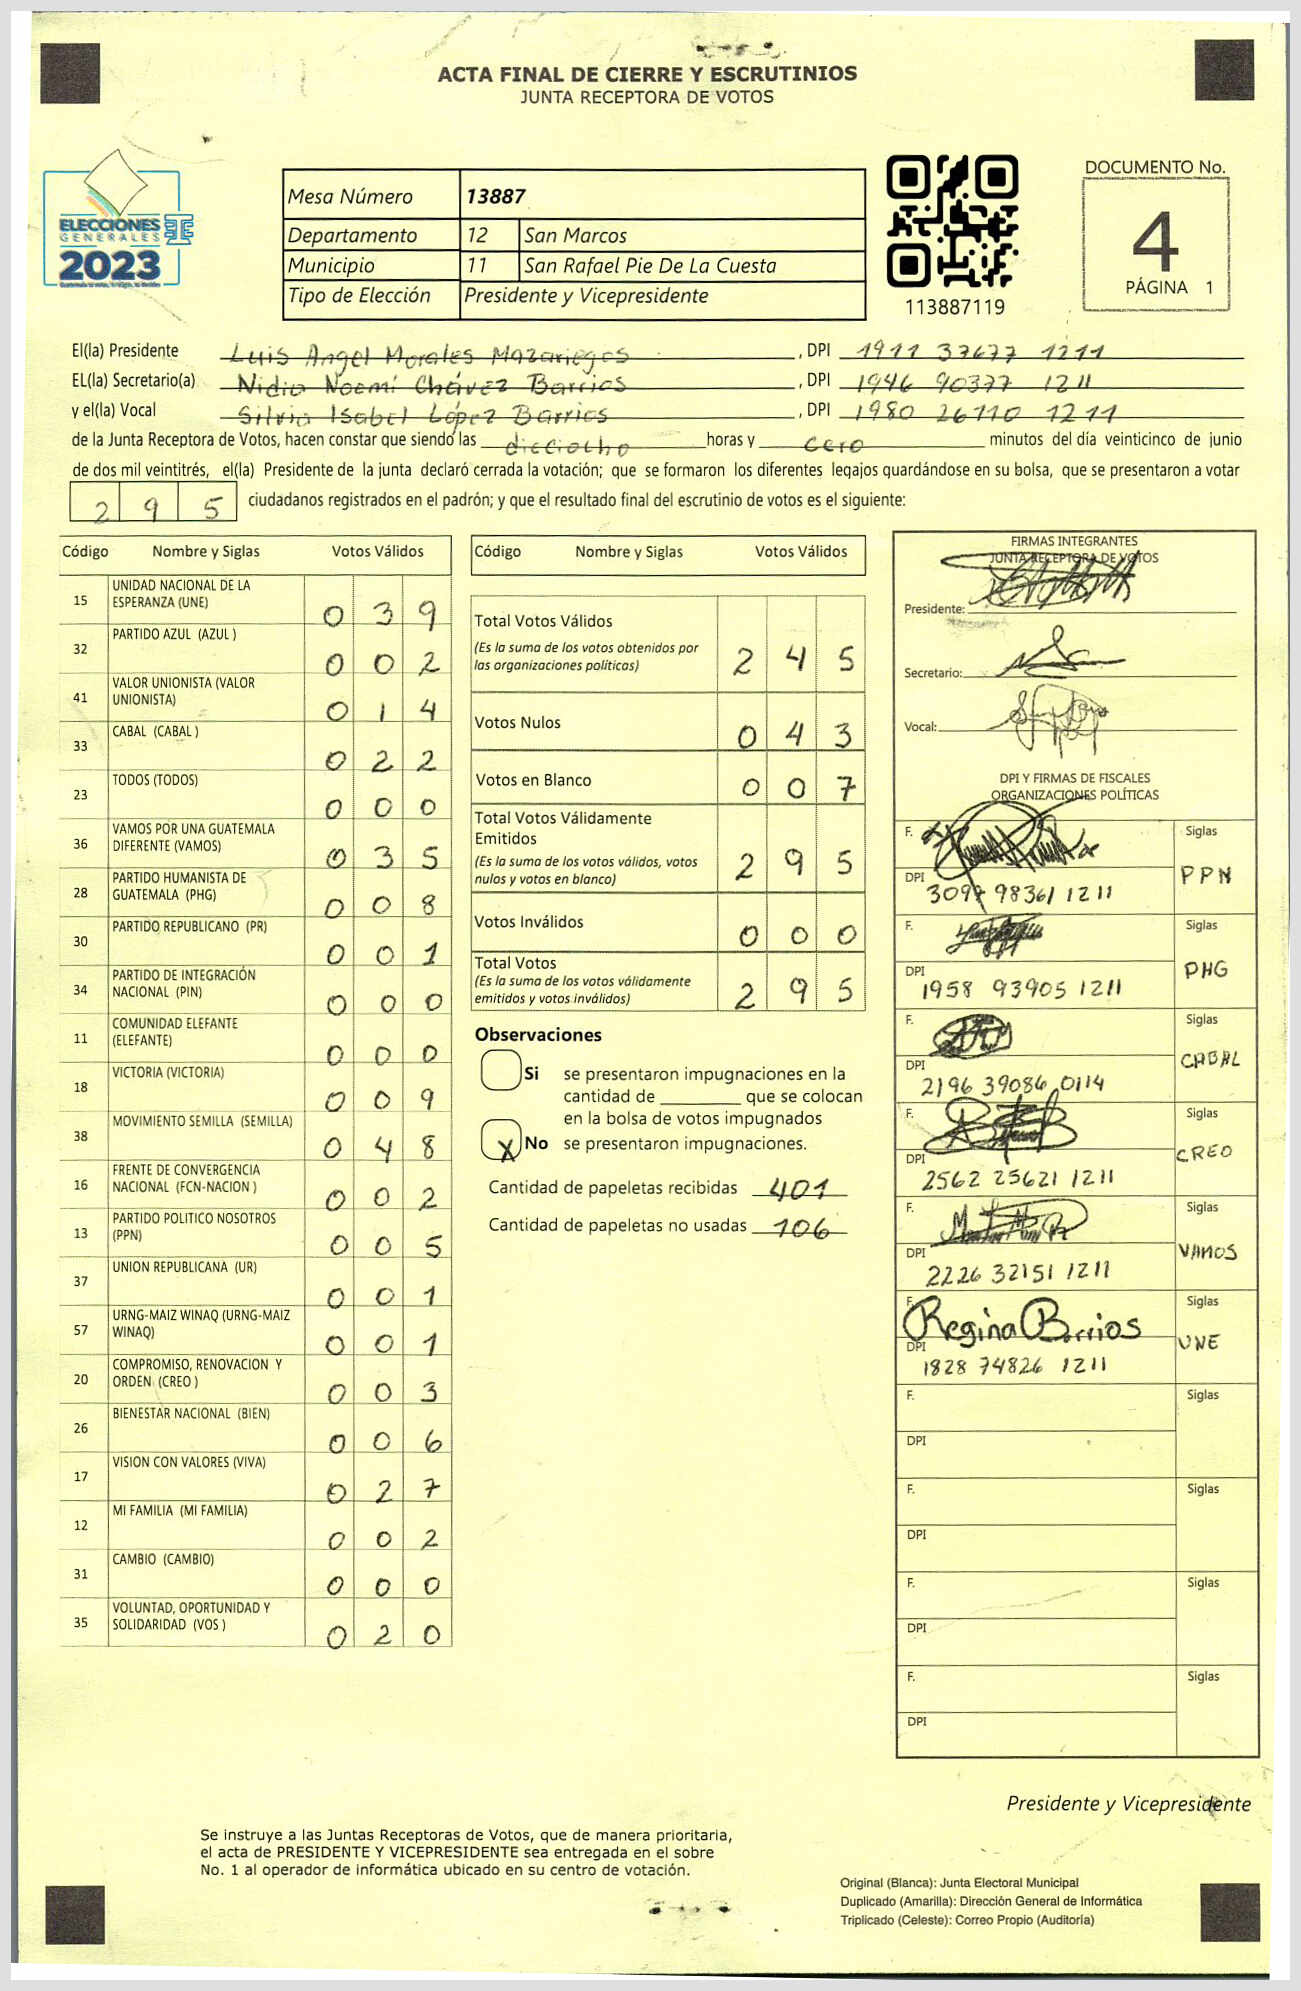 ACTA FINAL DE CIERRE Y ESCRUTINIOS
JUNTA RECEPTORA DE VOTOS
ELECCIONES
GENERALES
2023
Mesa Número 13887
Departamento 12 San Marcos
Municipio 11 San Rafael Pie De La Cuesta
Tipo de Elección Presidente y Vicepresidente
113887119
DOCUMENTO No.
4
PÁGINA 1
El(la) Presidente Luis Angel Morales Mazariegos, DPI 1911 37677 1211
EL(la) Secretario(a) Nidia Noemí Chávez Barrios, DPI 1946 90377 1211
y el(la) Vocal Silvia Isabel López Barrios, DPI 1980 26110 1211
de la Junta Receptora de Votos, hacen constar que siendo las dieciocho horas y cero minutos del día veinticinco de junio
de dos mil veintitrés, el(la) Presidente de la junta declaró cerrada la votación; que se formaron los diferentes legajos guardándose en su bolsa, que se presentaron a votar
295 ciudadanos registrados en el padrón; y que el resultado final del escrutinio de votos es el siguiente:
Código Nombre y Siglas Votos Válidos
15 UNIDAD NACIONAL DE LA ESPERANZA (UNE) 039
32 PARTIDO AZUL (AZUL ) 002
41 VALOR UNIONISTA (VALOR UNIONISTA) 014
33 CABAL (CABAL ) 022
23 TODOS (TODOS) 000
36 VAMOS POR UNA GUATEMALA DIFERENTE (VAMOS) 035
28 PARTIDO HUMANISTA DE GUATEMALA (PHG) 008
30 PARTIDO REPUBLICANO (PR) 001
34 PARTIDO DE INTEGRACIÓN NACIONAL (PIN) 000
11 COMUNIDAD ELEFANTE (ELEFANTE) 000
18 VICTORIA (VICTORIA) 009
38 MOVIMIENTO SEMILLA (SEMILLA) 048
16 FRENTE DE CONVERGENCIA NACIONAL (FCN-NACION ) 002
13 PARTIDO POLITICO NOSOTROS (PPN) 005
37 UNION REPUBLICANA (UR) 001
57 URNG-MAIZ WINAQ (URNG-MAIZ WINAQ) 001
20 COMPROMISO, RENOVACION Y ORDEN (CREO ) 003
26 BIENESTAR NACIONAL (BIEN) 006
17 VISION CON VALORES (VIVA) 027
12 MI FAMILIA (MI FAMILIA) 002
31 CAMBIO (CAMBIO) 000
35 VOLUNTAD, OPORTUNIDAD Y SOLIDARIDAD (VOS ) 020
Código Nombre y Siglas Votos Válidos
Total Votos Válidos 245
(Es la suma de los votos obtenidos por
las organizaciones políticas)
Votos Nulos 043
Votos en Blanco 007
Total Votos Válidamente
Emitidos 295
(Es la suma de los votos válidos, votos
nulos y votos en blanco)
Votos Inválidos 000
Total Votos 295
(Es la suma de los votos válidamente
emitidos y votos inválidos)
Observaciones
Si se presentaron impugnaciones en la
cantidad de ________ que se colocan
en la bolsa de votos impugnados
X No se presentaron impugnaciones.
Cantidad de papeletas recibidas 401
Cantidad de papeletas no usadas 106
FIRMAS INTEGRANTES
JUNTA RECEPTORA DE VOTOS
Presidente:
Secretario:
Vocal:
DPI Y FIRMAS DE FISCALES
ORGANIZACIONES POLÍTICAS
F. Siglas PPN
DPI 3097 98361 1211
F. Siglas PHG
DPI 1958 93905 1211
F. Siglas CABAL
DPI 2196 39086 0114
F. Siglas CREO
DPI 2562 25621 1211
F. Siglas VAMOS
DPI 2226 32151 1211
F. Regina Barrios Siglas UNE
DPI 1828 74826 1211
F. Siglas
DPI
F. Siglas
DPI
F. Siglas
DPI
F. Siglas
DPI
Presidente y Vicepresidente
Se instruye a las Juntas Receptoras de Votos, que de manera prioritaria,
el acta de PRESIDENTE Y VICEPRESIDENTE sea entregada en el sobre
No. 1 al operador de informática ubicado en su centro de votación.
Original (Blanca): Junta Electoral Municipal
Duplicado (Amarilla): Dirección General de Informática
Triplicado (Celeste): Correo Propio (Auditoría)